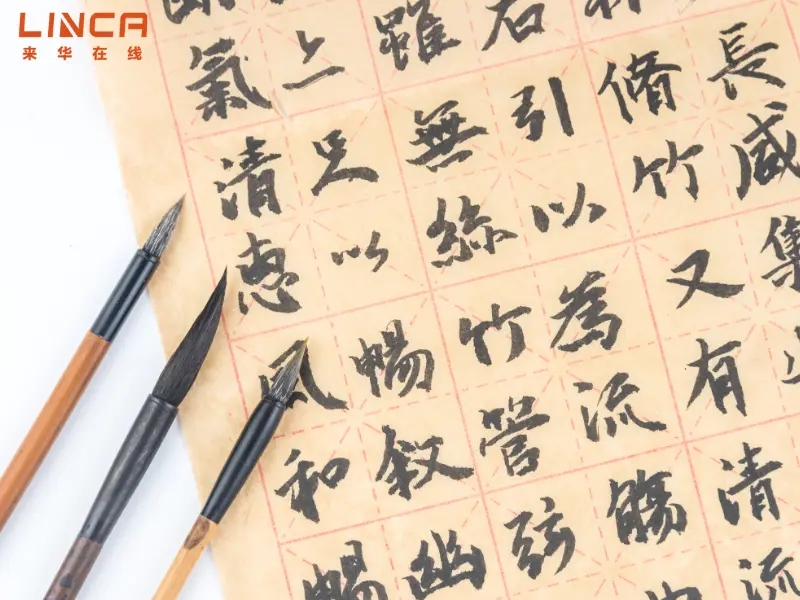 LINCA
来华在线
長咸集
脩竹又有清流
右引以為流觴
雖無絲竹管弦
足以暢敘幽
氣清惠風和暢